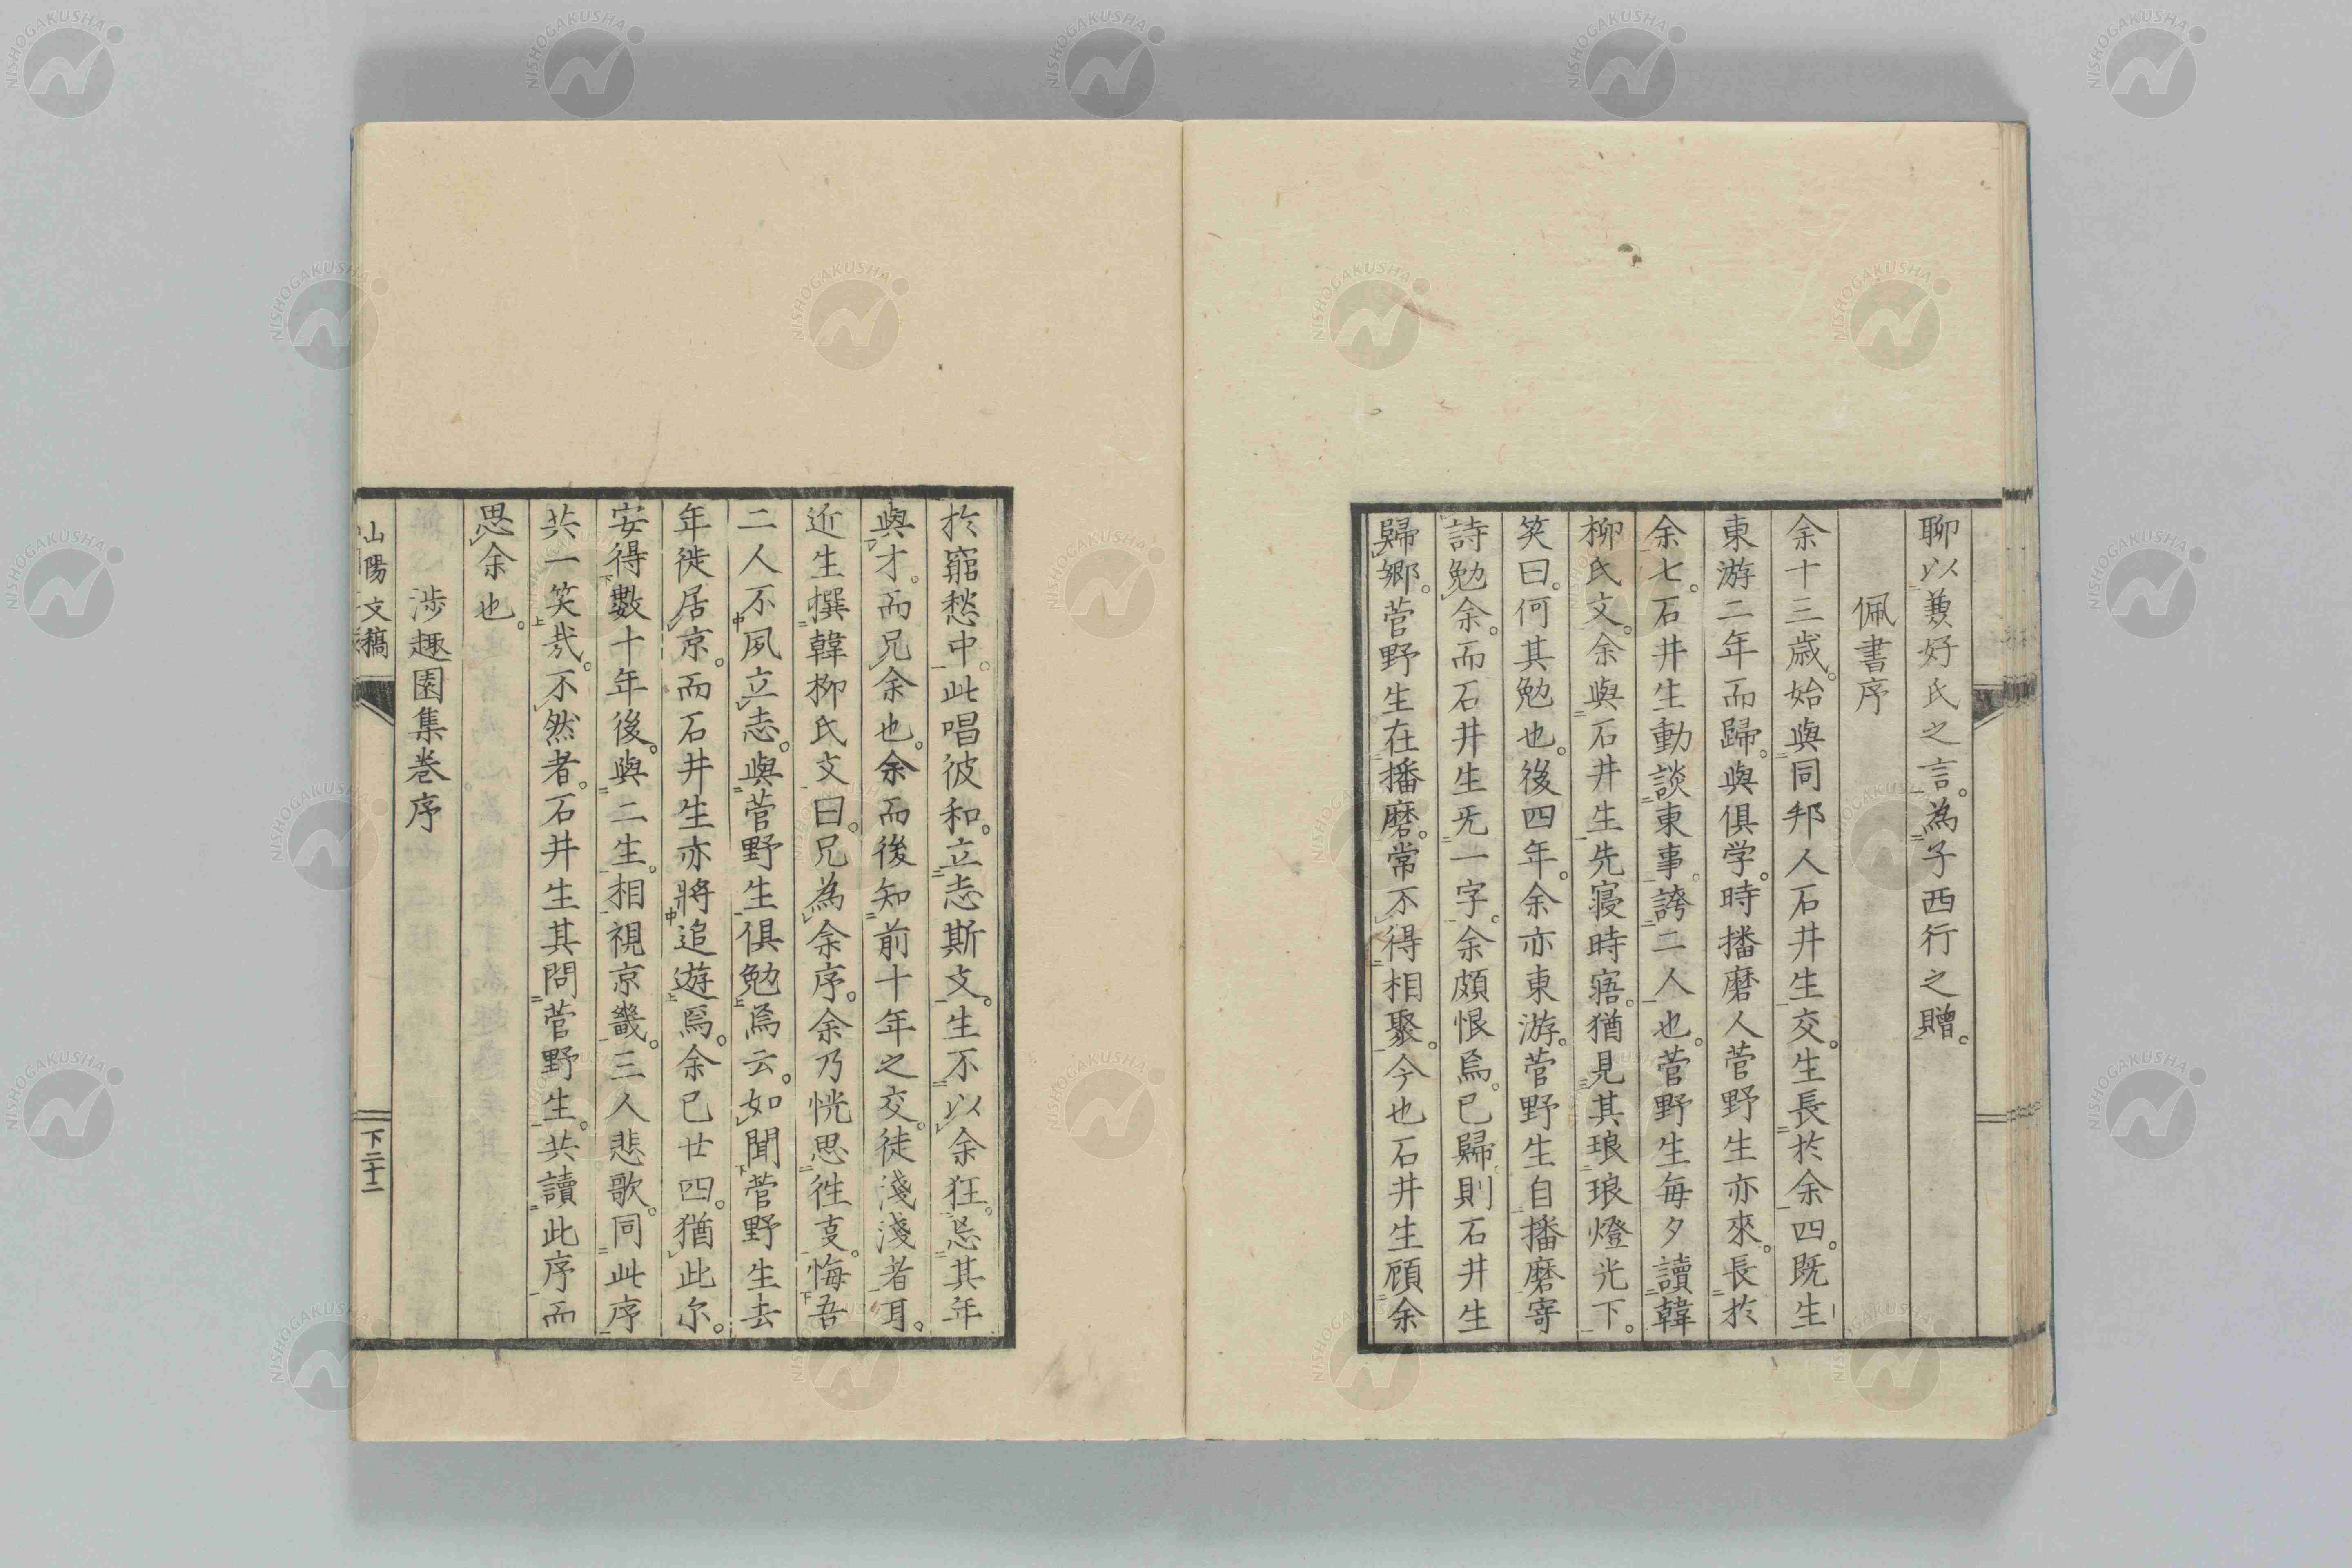 聊以兼好氏之言。為子西行之贈。
佩書序
余十三歳。始與同邦人石井生交。生長於余四。既生
東游二年而歸。與俱学。時播磨人菅野生亦來。長於
余七。石井生動談東事。誇二人也。菅野生毎夕讀韓
柳氏文。余與石井生先寝時寤。猶見其琅琅燈光下。
笑曰。何其勉也。後四年。余亦東游。菅野生自播磨寄
詩勉余。而石井生旡一字。余頗恨焉。已歸則石井生
歸郷。菅野生在播磨。常不得相聚。今也石井生顧余
於窮愁中。此唱彼和。立志斯文。生不以余狂。忌其年
與才。而兄余也。余而後知前十年之交。徒淺淺者耳。
近生撰韓柳氏文曰。兄為余序。余乃恍思徃叓。悔吾
二人不夙立志。與菅野生俱勉焉云。如聞菅野生去
年徙居京。而石井生亦將追遊焉。余已廿四。猶此尔。
安得數十年後。與二生。相視京畿。三人悲歌。同此序
共一笑哉。不然者。石井生其問菅野生。共讀此序而
思余也。
渉趣園集巻序
山陽文稿
下二十二
NISHOGAKUSHA